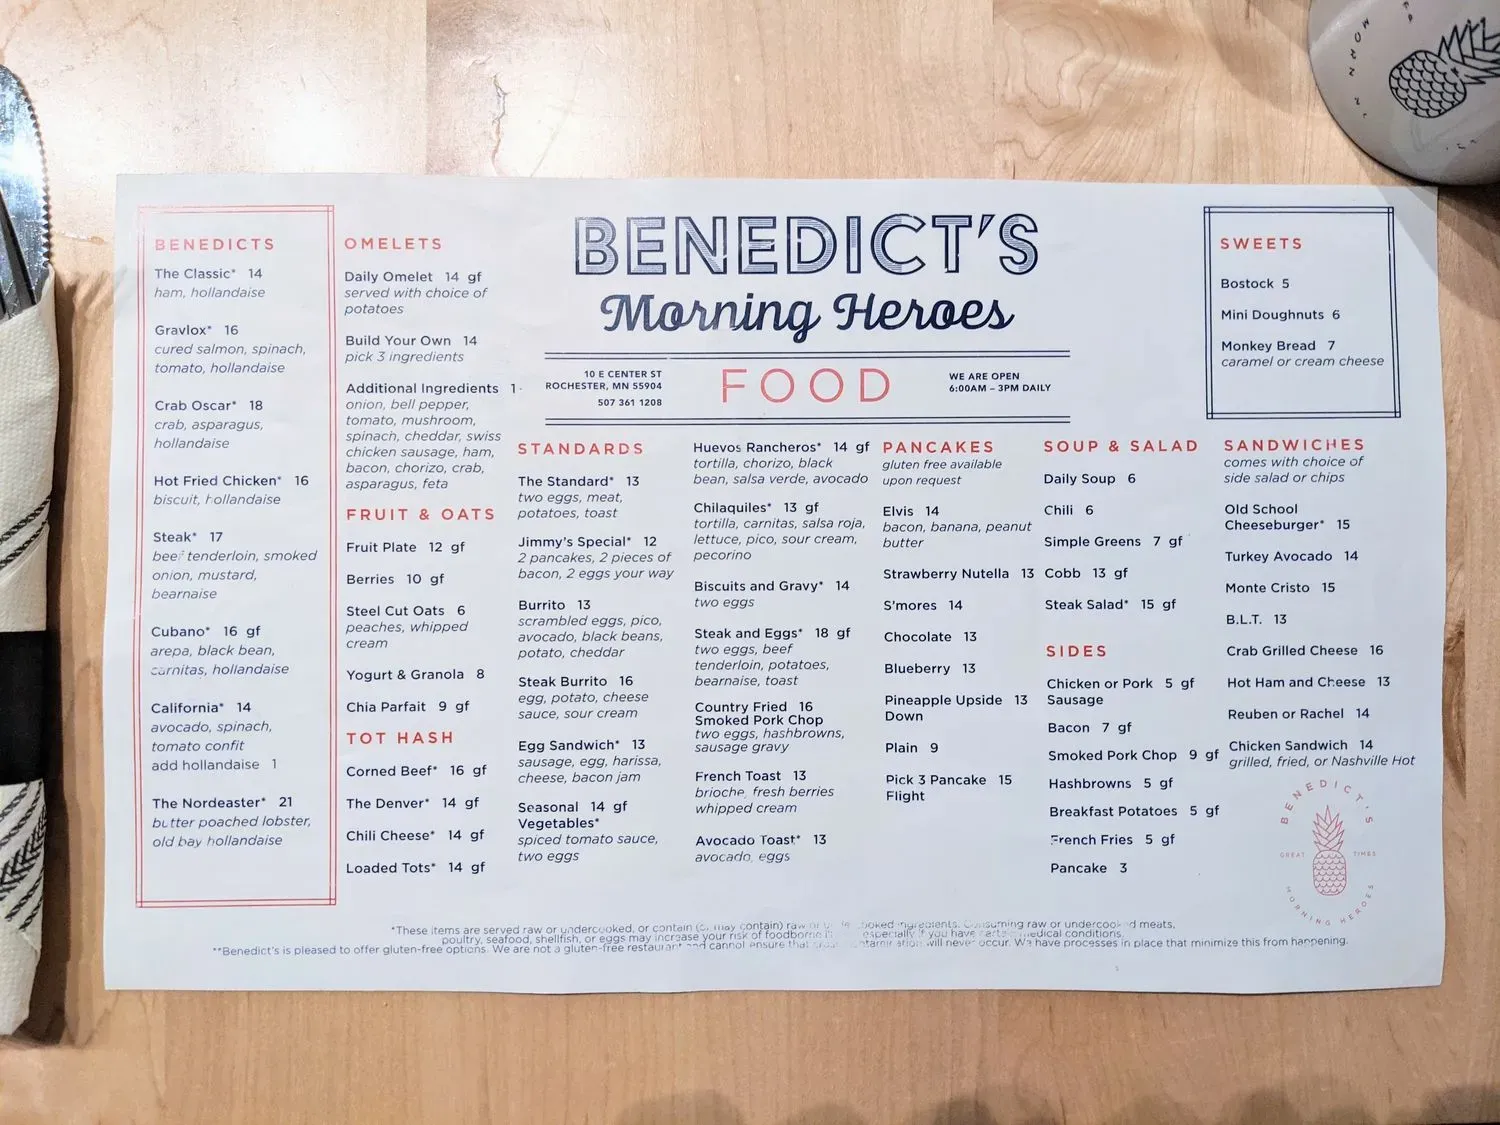 BENEDICT'S
Morning Heroes
10 E CENTER ST
ROCHESTER, MN 55904
507 361 1208
FOOD
WE ARE OPEN
6:00AM – 3PM DAILY
BENEDICTS
The Classic* 14
ham, hollandaise
Gravlox* 16
cured salmon, spinach,
tomato, hollandaise
Crab Oscar* 18
crab, asparagus,
hollandaise
Hot Fried Chicken* 16
biscuit, hollandaise
Steak* 17
beef tenderloin, smoked
onion, mustard,
bearnaise
Cubano* 16 gf
arepa, black bean,
carnitas, hollandaise
California* 14
avocado, spinach,
tomato confit
add hollandaise 1
The Nordeaster* 21
butter poached lobster,
old bay hollandaise
OMELETS
Daily Omelet 14 gf
served with choice of
potatoes
Build Your Own 14
pick 3 ingredients
Additional Ingredients 1
onion, bell pepper,
tomato, mushroom,
spinach, cheddar, swiss
chicken sausage, ham,
bacon, chorizo, crab,
asparagus, feta
FRUIT & OATS
Fruit Plate 12 gf
Berries 10 gf
Steel Cut Oats 6
peaches, whipped
cream
Yogurt & Granola 8
Chia Parfait 9 gf
TOT HASH
Corned Beef* 16 gf
The Denver* 14 gf
Chili Cheese* 14 gf
Loaded Tots* 14 gf
STANDARDS
The Standard* 13
two eggs, meat,
potatoes, toast
Jimmy's Special* 12
2 pancakes, 2 pieces of
bacon, 2 eggs your way
Burrito 13
scrambled eggs, pico,
avocado, black beans,
potato, cheddar
Steak Burrito 16
egg, potato, cheese
sauce, sour cream
Egg Sandwich* 13
sausage, egg, harissa,
cheese, bacon jam
Seasonal 14 gf
Vegetables*
spiced tomato sauce,
two eggs
Huevos Rancheros* 14 gf
tortilla, chorizo, black
bean, salsa verde, avocado
Chilaquiles* 13 gf
tortilla, carnitas, salsa roja,
lettuce, pico, sour cream,
pecorino
Biscuits and Gravy* 14
two eggs
Steak and Eggs* 18 gf
two eggs, beef
tenderloin, potatoes,
bearnaise, toast
Country Fried 16
Smoked Pork Chop
two eggs, hashbrowns,
sausage gravy
French Toast 13
brioche, fresh berries
whipped cream
Avocado Toast* 13
avocado, eggs
PANCAKES
gluten free available
upon request
Elvis 14
bacon, banana, peanut
butter
Strawberry Nutella 13
S'mores 14
Chocolate 13
Blueberry 13
Pineapple Upside 13
Down
Plain 9
Pick 3 Pancake 15
Flight
SOUP & SALAD
Daily Soup 6
Chili 6
Simple Greens 7 gf
Cobb 13 gf
Steak Salad* 15 gf
SIDES
Chicken or Pork 5 gf
Sausage
Bacon 7 gf
Smoked Pork Chop 9 gf
Hashbrowns 5 gf
Breakfast Potatoes 5 gf
French Fries 5 gf
Pancake 3
SWEETS
Bostock 5
Mini Doughnuts 6
Monkey Bread 7
caramel or cream cheese
SANDWICHES
comes with choice of
side salad or chips
Old School
Cheeseburger* 15
Turkey Avocado 14
Monte Cristo 15
B.L.T. 13
Crab Grilled Cheese 16
Hot Ham and Cheese 13
Reuben or Rachel 14
Chicken Sandwich 14
grilled, fried, or Nashville Hot
BENEDICT'S
GREAT TIMES
MORNING HEROES
*These items are served raw or undercooked, or contain (or may contain) raw or ingredients. Consuming raw or undercooked meats,
poultry, seafood, shellfish, or eggs may increase your risk of foodborne especially if you have medical conditions.
**Benedict's is pleased to offer gluten-free options. We are not a gluten-free restaurant and cannot ensure that will never occur. We have processes in place that minimize this from happening.